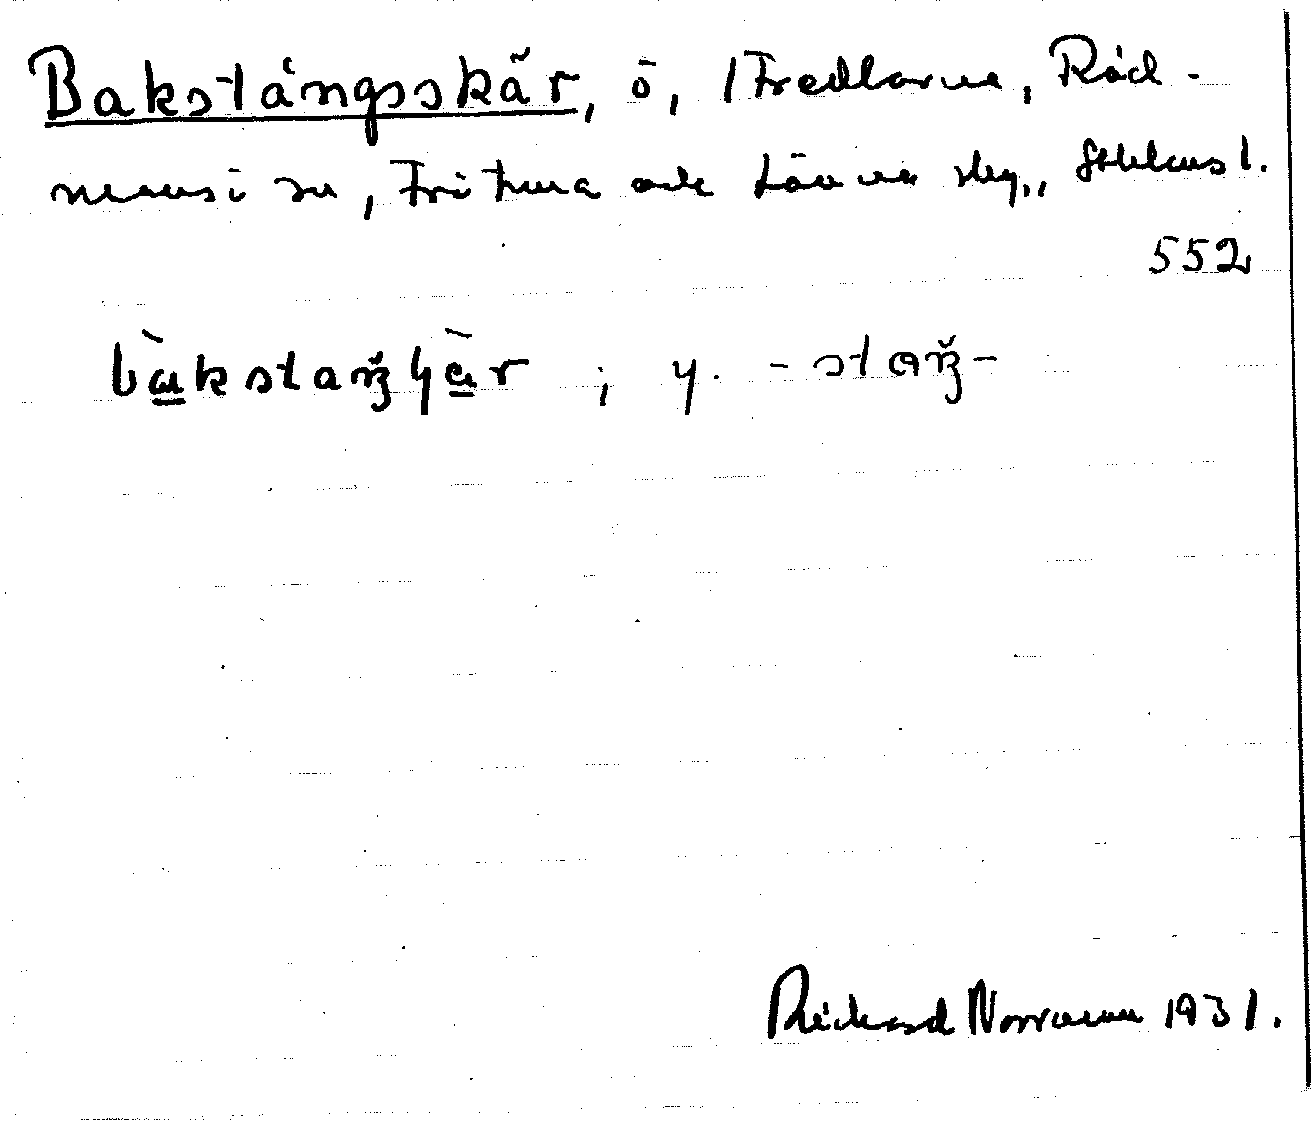 Bakstångsskär, ö, Fredlarna, Råd-
mansö sn, Frötuna och Länna skg., Sthlms l.
552
bakstaŋʒɥär ; y. -staŋʒ-
Rickard Norrman 1931.